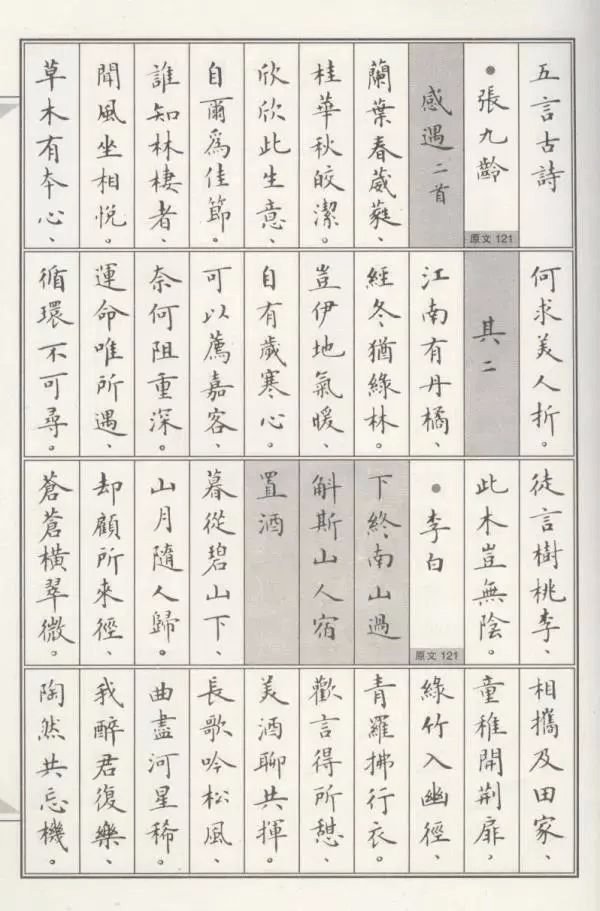 五言古詩
•張九齡
原文121
感遇二首
蘭葉春葳蕤、
桂華秋皎潔。
欣欣此生意、
自爾爲佳節。
誰知林棲者、
聞風坐相悅。
草木有本心、
何求美人折。
其二
江南有丹橘、
經冬猶綠林。
豈伊地氣暖、
自有歲寒心。
可以薦嘉客、
奈何阻重深。
運命唯所遇、
循環不可尋。
徒言樹桃李、
此木豈無陰。
•李白
原文121
下終南山過
斛斯山人宿
置酒
暮從碧山下、
山月隨人歸。
却顧所來徑、
蒼蒼橫翠微。
相攜及田家、
童稚開荆扉，
綠竹入幽徑、
青羅拂行衣。
歡言得所憩、
美酒聊共揮。
長歌吟松風、
曲盡河星稀。
我醉君復樂、
陶然共忘機。